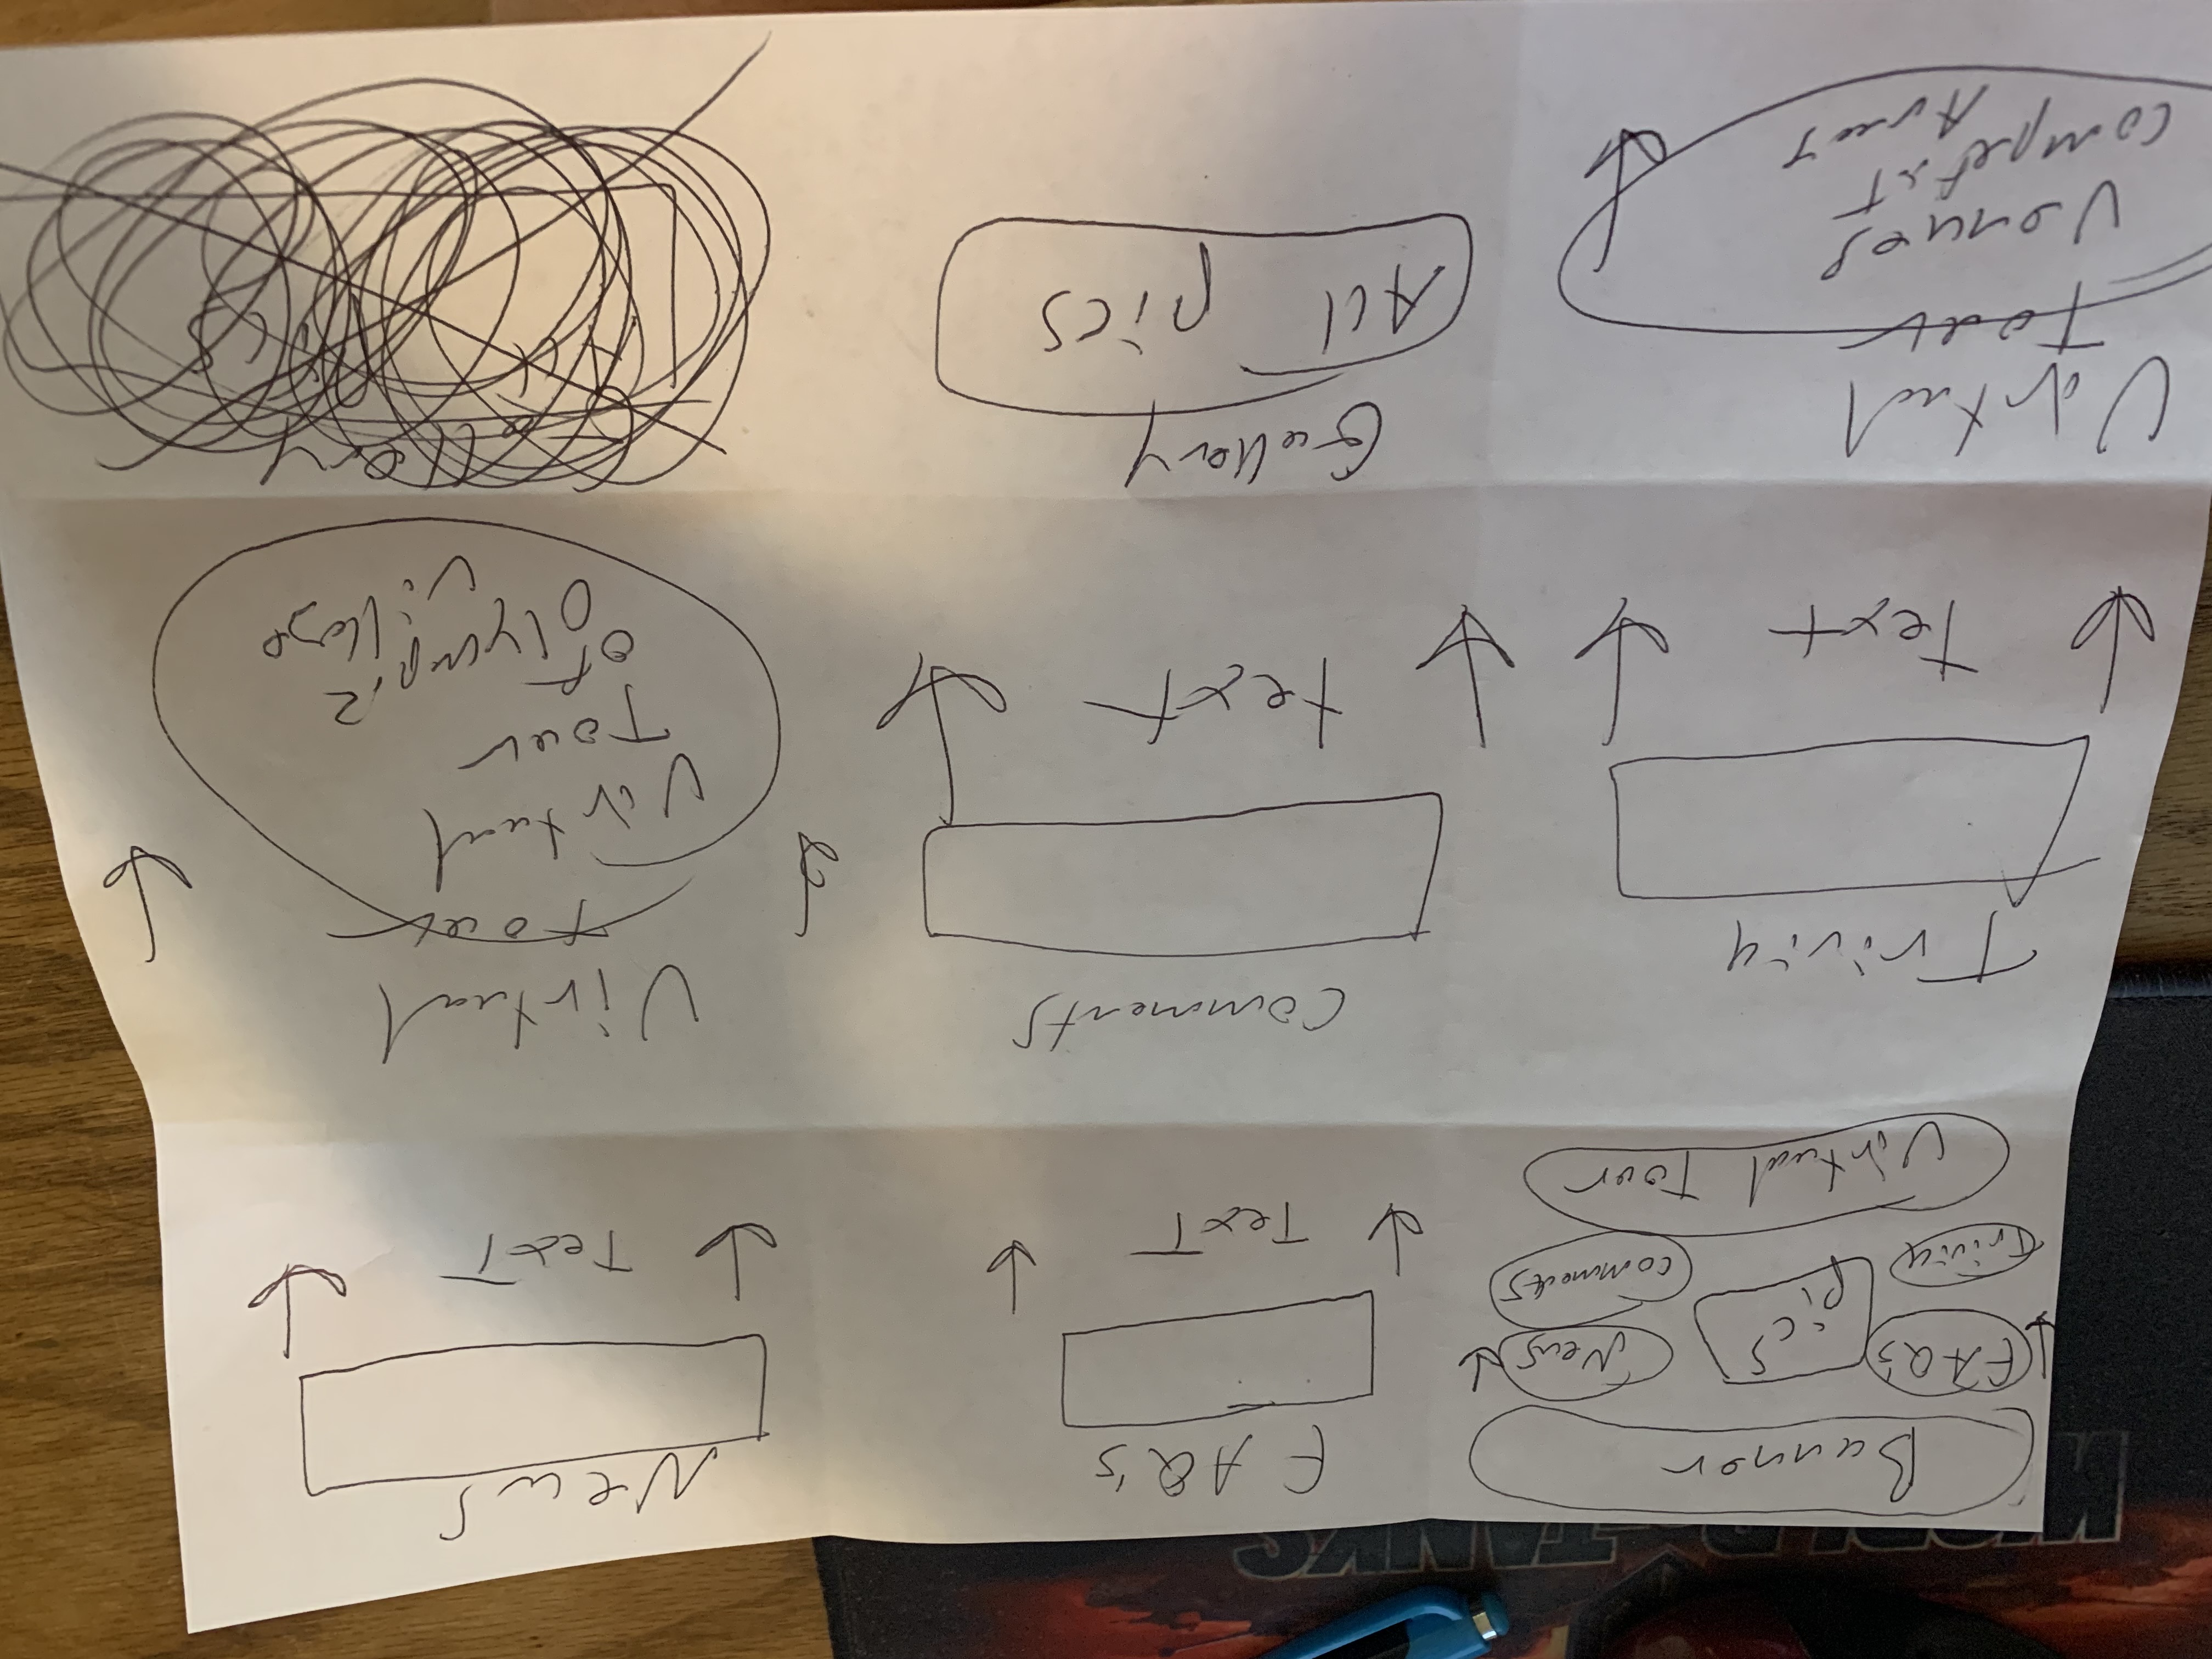 WORLD OF TANKS
Banner
FAQ's
pics
News
Trivia
comments
Virtual Tour
FAQ's
TexT
News
TexT
Trivia
Text
Comments
text
Virtual
Tour
Virtual
Tour
of
Olympic
Village
Virtual
Tour
Venues
Areas
Gallery
All pics
Gallery
All Pics